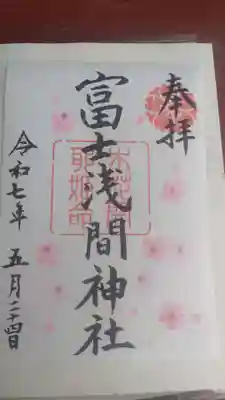 奉拝
富士浅間神社
令和七年 五月二十四日